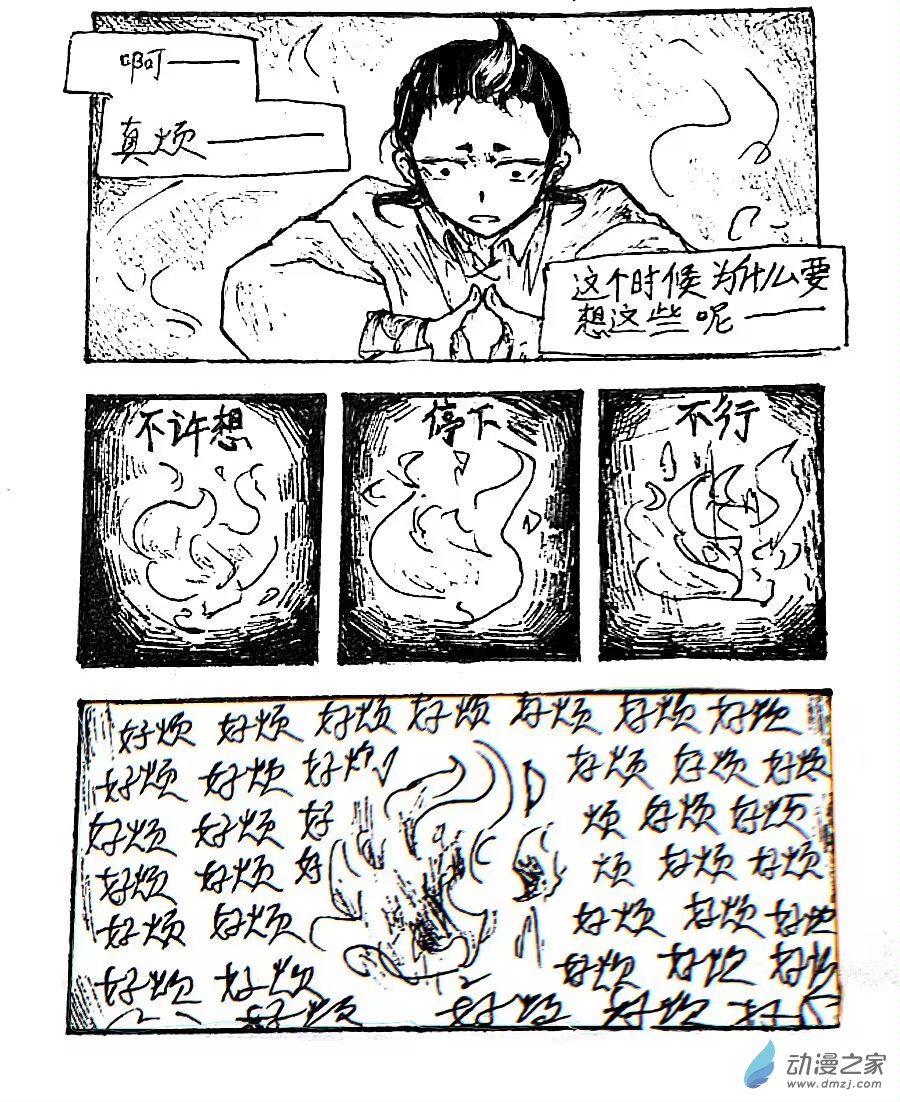 啊——
真烦——
这个时候为什么要
想这些呢——
不许想
停下
不行
好烦 好烦 好烦 好烦 好烦 好烦 好烦
好烦 好烦 好烦 好烦 好烦 好烦
好烦 好烦 好 烦 好烦 好烦
好烦 好烦 好 烦 好烦 好烦
好烦 好烦 好烦 好烦 好烦
好烦 好烦 好烦 好烦 好烦
好烦 好烦 好烦 好
动漫之家
www.dmzj.com